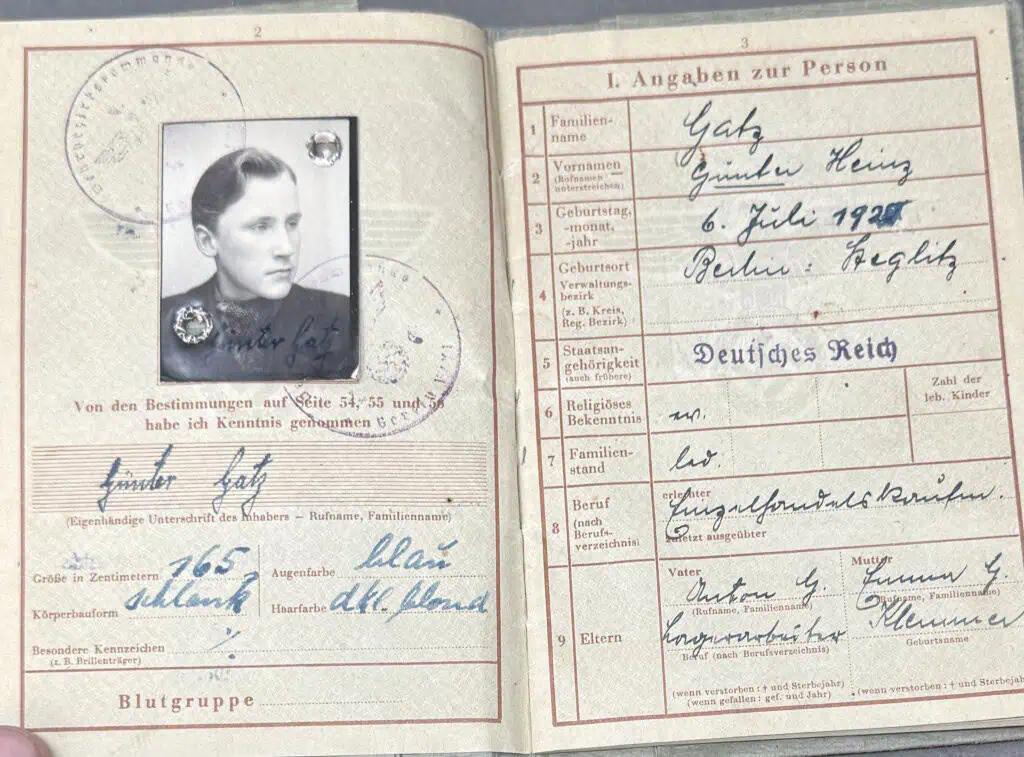 2
Wehrbezirkskommando
Günter Gatz
Von den Bestimmungen auf Seite 54, 55 und 56
habe ich Kenntnis genommen
Günter Gatz
(Eigenhändige Unterschrift des Inhabers – Rufname, Familienname)
Größe in Zentimetern 165
Augenfarbe blau
Körperbauform schlank
Haarfarbe dkl. blond
Besondere Kennzeichen
(z. B. Brillenträger)
Blutgruppe
3
I. Angaben zur Person
1 Familien-
name
Gatz
2 Vornamen
(Rufnamen
unterstreichen)
Günter Heinz
3 Geburtstag,
-monat,
-jahr
6. Juli
4 Geburtsort
Verwaltungs-
bezirk
(z. B. Kreis,
Reg. Bezirk)
Berlin: Steglitz
5 Staatsan-
gehörigkeit
(auch frühere)
Deutsches Reich
6 Religiöses
Bekenntnis
ev.
Zahl der
leb. Kinder
7 Familien-
stand
led.
8 Beruf
(nach
Berufs-
verzeichnis)
erlernter
Einzelhandelskaufm.
zuletzt ausgeübter
9 Eltern
Vater
Anton G.
(Rufname, Familienname)
Lagerarbeiter
Beruf (nach Berufsverzeichnis)
(wenn verstorben: † und Sterbejahr)
(wenn gefallen: gef. und Jahr)
Mutter
Emma G.
(Rufname, Familienname)
Klemmer
Geburtsname
(wenn verstorben: † und Sterbejahr)